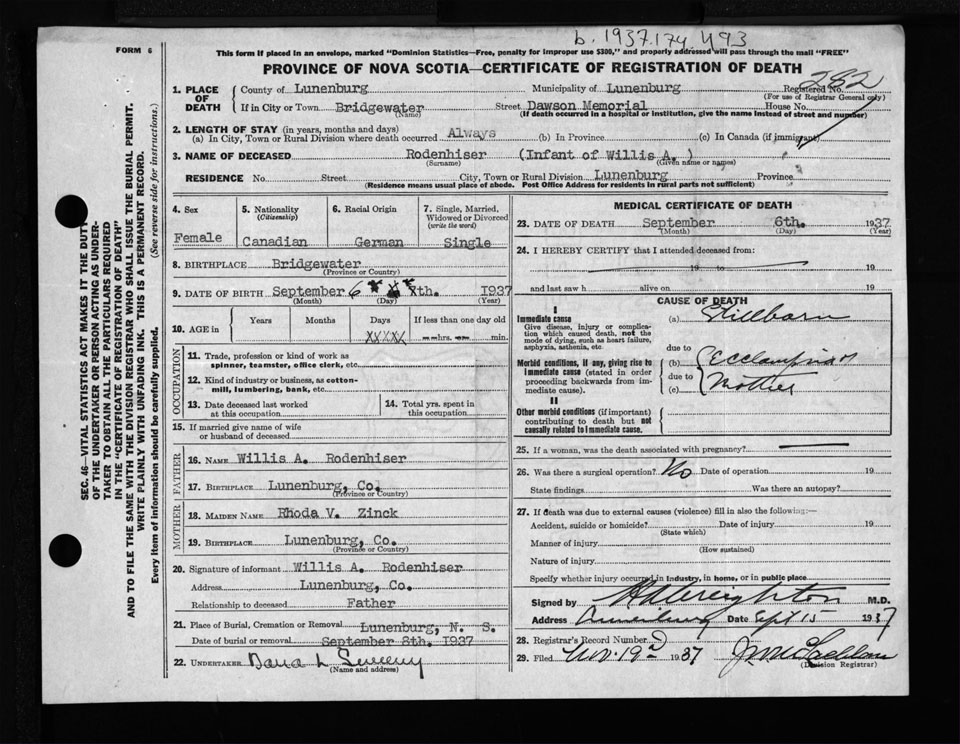 b. 1937.174 493
FORM 6
This form if placed in an envelope, marked "Dominion Statistics—Free, penalty for improper use $300," and properly addressed will pass through the mail "FREE"
PROVINCE OF NOVA SCOTIA—CERTIFICATE OF REGISTRATION OF DEATH
282
1. PLACE OF DEATH
County of Lunenburg Municipality of Lunenburg Registered No.
(For use of Registrar General only)
If in City or Town Bridgewater Street Dawson Memorial House No.
(Name) (If death occurred in a hospital or institution, give the name instead of street and number)
2. LENGTH OF STAY (in years, months and days)
(a) In City, Town or Rural Division where death occurred Always (b) In Province (c) In Canada (if immigrant)
3. NAME OF DECEASED Rodenhiser (Infant of Willis A. )
(Surname) (Given name or names)
RESIDENCE No. Street City, Town or Rural Division Lunenburg Province
(Residence means usual place of abode. Post Office Address for residents in rural parts not sufficient)
SEC. 46—VITAL STATISTICS ACT MAKES IT THE DUTY
OF THE UNDERTAKER OR PERSON ACTING AS UNDER-
TAKER TO OBTAIN ALL THE PARTICULARS REQUIRED
IN THE "CERTIFICATE OF REGISTRATION OF DEATH"
AND TO FILE THE SAME WITH THE DIVISION REGISTRAR WHO SHALL ISSUE THE BURIAL PERMIT.
WRITE PLAINLY WITH UNFADING INK. THIS IS A PERMANENT RECORD.
Every item of information should be carefully supplied. (See reverse side for instructions.)
4. Sex
Female
5. Nationality
(Citizenship)
Canadian
6. Racial Origin
German
7. Single, Married,
Widowed or Divorced
(write the word)
Single
8. BIRTHPLACE Bridgewater
(Province or Country)
9. DATE OF BIRTH September 6 th. 1937
(Month) (Day) (Year)
10. AGE in
Years Months Days If less than one day old
XXXXX hrs. min.
OCCUPATION
11. Trade, profession or kind of work as
spinner, teamster, office clerk, etc.
12. Kind of industry or business, as cotton-
mill, lumbering, bank, etc.
13. Date deceased last worked
at this occupation
14. Total yrs. spent in
this occupation
15. If married give name of wife
or husband of deceased
FATHER
16. NAME Willis A. Rodenhiser
17. BIRTHPLACE Lunenburg, Co.
(Province or Country)
MOTHER
18. MAIDEN NAME Rhoda V. Zinck
19. BIRTHPLACE Lunenburg, Co.
(Province or Country)
20. Signature of informant Willis A. Rodenhiser
Address Lunenburg, Co.
Relationship to deceased Father
21. Place of Burial, Cremation or Removal Lunenburg, N. S.
Date of burial or removal September 8th. 1937
22. UNDERTAKER L Sweeny
(Name and address)
MEDICAL CERTIFICATE OF DEATH
23. DATE OF DEATH September 6th. 1937
(Month) (Day) (Year)
24. I HEREBY CERTIFY that I attended deceased from:
19 to 19
and last saw h alive on 19
CAUSE OF DEATH
I
Immediate cause
Give disease, injury or complica-
tion which caused death, not the
mode of dying, such as heart failure,
asphyxia, asthenia, etc.
(a) Stillborn
due to
Morbid conditions, if any, giving rise to
Immediate cause (stated in order
proceeding backwards from im-
mediate cause).
(b) Ecclampsia of
due to
(c) Mother
II
Other morbid conditions (if important)
contributing to death but not
causally related to immediate cause.
25. If a woman, was the death associated with pregnancy?
26. Was there a surgical operation? No Date of operation 19
State findings Was there an autopsy?
27. If death was due to external causes (violence) fill in also the following:—
Accident, suicide or homicide? Date of injury 19
(State which)
Manner of injury
(How sustained)
Nature of injury
Specify whether injury occurred in industry, in home, or in public place
Signed by Creighton M.D.
Address Lunenburg Date Sept 15 1937
28. Registrar's Record Number
29. Filed Nov. 19 1937
(Division Registrar)